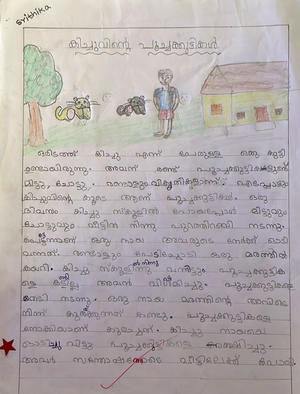 Srithika
കിച്ചുവിന്റെ പൂച്ചക്കുട്ടികൾ
ഒരിടത്ത് കിച്ചു എന്ന് പേരുള്ള ഒരു കുട്ടി
ഉണ്ടായിരുന്നു. അവന് രണ്ട് പൂച്ചക്കുട്ടികളുണ്ട്
മിട്ടു, ചോട്ടു. രണ്ടാളും വികൃതികളാണ്. എപ്പോഴും
കിച്ചുവിന്റെ കൂടെ ആണ് പൂച്ചക്കുട്ടികൾ. ഒരു
ദിവസം കിച്ചു സ്കൂളിൽ പോയപ്പോൾ മിട്ടുവും
ചോട്ടുവും വീട്ടിൽ നിന്നു പുറത്തിറങ്ങി നടന്നു.
പെട്ടെന്നാണ് ഒരു നായ അവരുടെ നേർക്ക് ഓടി
വന്നത്. രണ്ടാളും പേടിച്ചോടി ഒരു മരത്തിൽ
കയറി. കിച്ചു സ്കൂളിൽ നിന്നു വന്നിട്ടും പൂച്ചക്കുട്ടിക
ളെ കണ്ടില്ല. അവൻ വിഷമിച്ചു. പൂച്ചക്കുട്ടികളെ
തേടി നടന്നു. ഒരു നായ മരത്തിന്റെ അടിയിൽ
നിന്ന് കുരക്കുന്നത് കണ്ടു. പൂച്ചക്കുട്ടികളെ
നോക്കിയാണ് കുരച്ചത്. കിച്ചു നായയെ
ഓടിച്ചു വിട്ടു പൂച്ചക്കുട്ടികളെ രക്ഷിച്ചു.
അവർ സന്തോഷത്തോടെ വീട്ടിലേക്ക് പോയി.